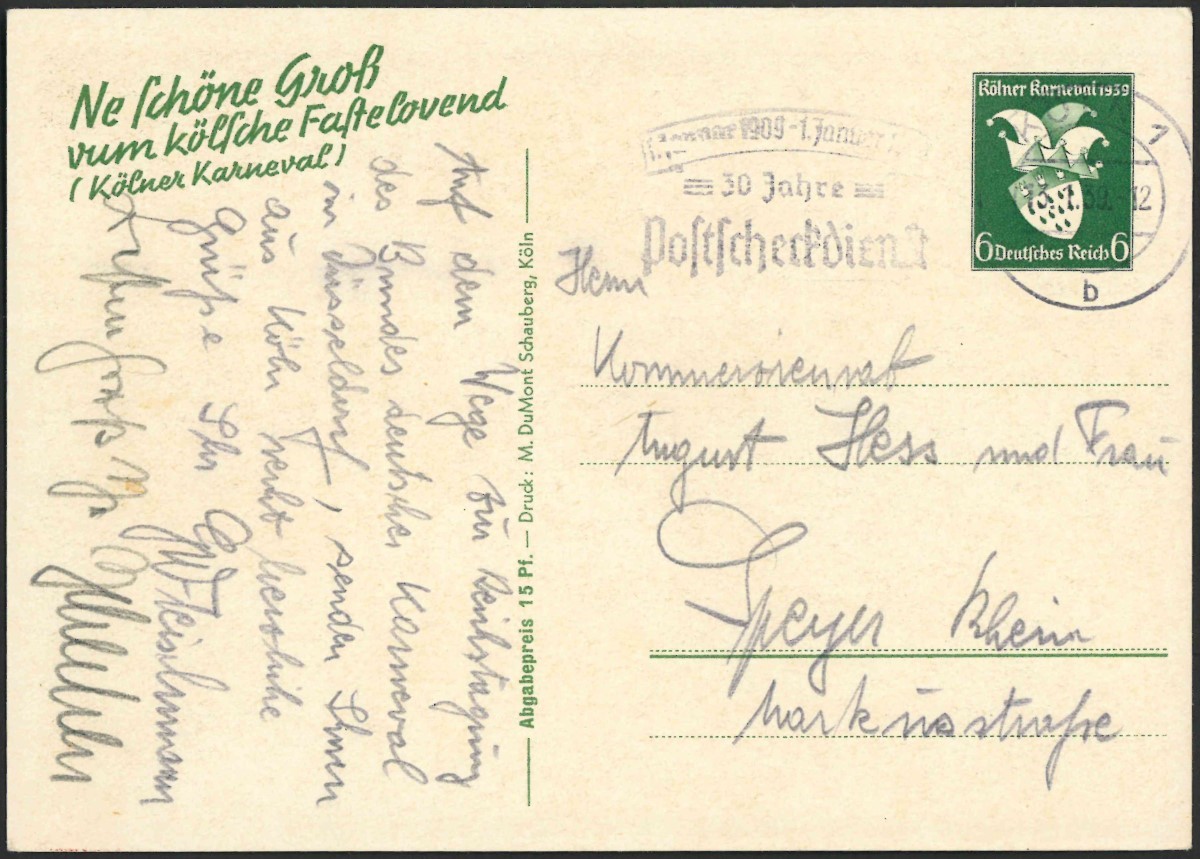 Ne schöne Groß
vum kölsche Fastelovend
(Kölner Karneval)
Auf dem Wege zur Reichstagung
des Bundes deutscher Karneval
in Düsseldorf, senden Ihnen
aus Köln recht herzliche
Grüße Ihr
Abgabepreis 15 Pf. — Druck: M. DuMont Schauberg, Köln
1. Januar 1909 - 1. Januar
30 Jahre
Postscheckdienst
Kölner Karneval 1939
6 Deutsches Reich 6
b
Herrn
Kommerzienrat
August Hess und Frau
Speyer Rhein
Markusstraße